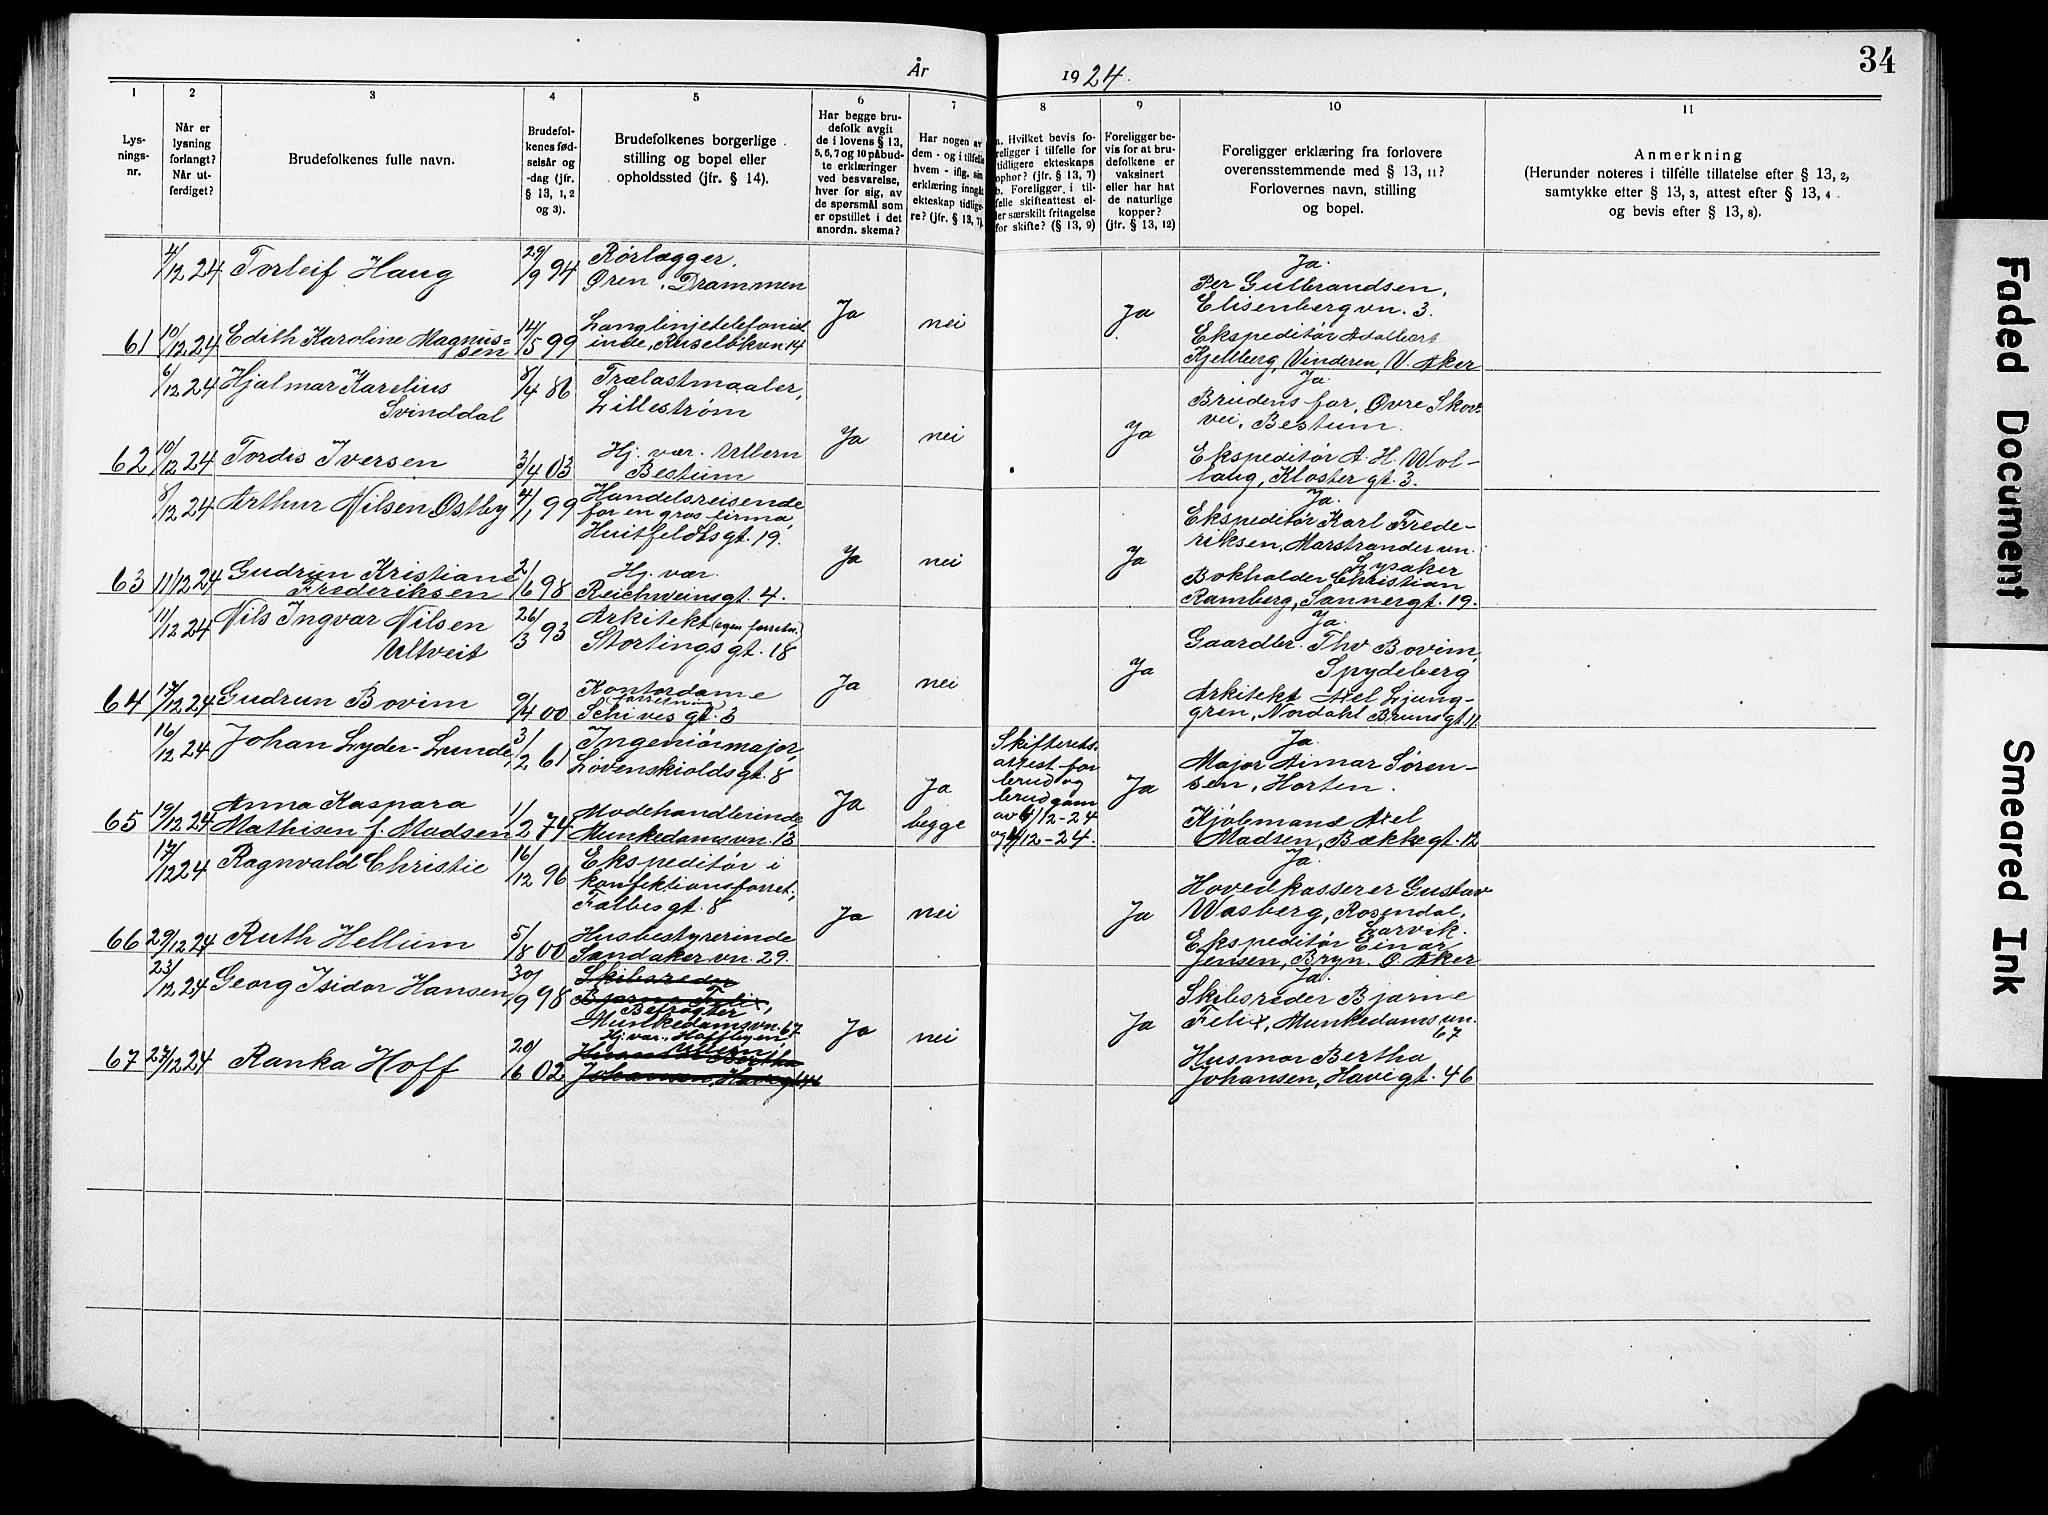 År 1924.
34
1
2
3
4
5
6
7
8
9
10
11
Lys-
nings-
nr.
Når er
lysning
forlangt?
Når ut-
ferdiget?
Brudefolkenes fulle navn.
Brudefol-
kenes fød-
selsår og
-dag (jfr.
§ 13, 1, 2
og 3).
Brudefolkenes borgerlige
stilling og bopel eller
opholdssted (jfr. § 14).
Har begge bru-
defolk avgit
de i lovens § 13,
5, 6, 7 og 10 påbud-
te erklæringer
ved besvarelse,
hver for sig, av
de spørsmål som
er opstillet i det
anordn. skema?
Har nogen av
dem - og i tilfelle
hvem - iflg. sin
erklæring inngåt
ekteskap tidlige-
re? (jfr. § 13, 7)
a. Hvilket bevis fo-
religger i tilfelle for
tidligere ekteskaps
ophør? (jfr. § 13, 7)
b. Foreligger i til-
felle skifteattest el-
ler særskilt fritagelse
for skifte? (§ 13, 9)
Foreligger be-
vis for at bru-
defolkene er
vaksinert
eller har hat
de naturlige
kopper?
(jfr. § 13, 12)
Foreligger erklæring fra forlovere
overensstemmende med § 13, 11?
Forlovernes navn, stilling
og bopel.
Anmerkning
(Herunder noteres i tilfelle tillatelse efter § 13, 2,
samtykke efter § 13, 3, attest efter § 13, 4
og bevis efter § 13, 8).
4/12 24 Torleif Haug
29/9 94
Rørlægger,
Øren, Drammen
61 10/12 24 Edith Karoline Magnus-
sen
14/5 99
Langlinjetelefonist-
inde, Ruseløkvn 14
Ja
nei
Ja
Ja.
Per Gulbrandsen,
Elisenbergvn. 3.
Ekspeditør Adalbert
Kjellberg, Vinderen, V. Aker
6/12 24 Hjalmar Karelius
Svinddal
8/4 86
Trælastmaaler,
Lillestrøm
62 10/12 24 Tordis Iversen
3/4 03
Hj. vær. Ullern
Bestum
Ja
nei
Ja
Ja.
Brudens far, Øvre Skov-
vei, Bestum.
Ekspeditør A. H. Wol-
laug, Kloster gt. 3.
8/12 24 Arthur Nilsen Østby
4/1 99
Handelsreisende
for en gros firma,
Huitfeldts gt. 19.
63 11/12 24 Gudrun Kristiane
Frederiksen
2/6 98
Hj. vær.
Reichweinsgt. 4.
Ja
nei
Ja
Ja.
Ekspeditør Karl Frede-
riksen, Marstrandervn.
Lysaker
Bokholder Christian
Ramberg, Sannergt. 19.
11/12 24 Nils Ingvar Nilsen
Ultveit
26/3 93
Arkitekt (egen forretn.)
Stortings gt. 18
64 17/12 24 Gudrun Bovim
9/4 00
Kontordame
(forretning)
Schives gt. 3
Ja
nei
Ja
Ja.
Gaardbr. Thv Bovim,
Spydeberg
Arkitekt Axel Ljung-
gren, Nordahl Brunsgt. 11.
16/12 24 Johan Lyder-Lunde,
3/2 61
Ingeniørmajor,
Løvenskiolds gt. 8
65 19/12 24 Anna Kaspara
Mathisen f. Madsen
1/2 74
Modehandlerinde,
Munkedamsvn. 13
Ja
Ja
begge
Skifterets-
attest for
brud og
brudgom
av /12-24
og /12-24.
Ja
Ja.
Major Aimar Søren-
sen, Horten.
Kjøbmand Axel
Madsen, Bækkegt. 12
17/12 24 Ragnvald Christie
16/12 96
Ekspeditør i
konfektionsforret;
Falbes gt. 8
66 29/12 24 Ruth Hellum
5/8 00
Husbestyrerinde
Sandakervn. 29.
Ja
nei
Ja
Ja.
Hovedkasserer Gustav
Wasberg, Rosendal,
Larvik.
Ekspeditør Einar
Jensen, Bryn. Ø. Aker
23/12 24 Georg Isidor Hansen,
30/9 98
Skibsreder
Bjarne Felix,
Befragter
Munkedamsvn. 67
67 27/12 24 Ranka Hoff
20/6 02
Hj. vær. Hoffbyen,
Ullern,
Husmor Bertha
Johansen, Havegt. 46
Ja
nei
Ja
Ja.
Skibsreder Bjarne
Felix, Munkedamsvn.
67
Husmor Bertha
Johansen, Havegt. 46
Faded Document
Smeared Ink